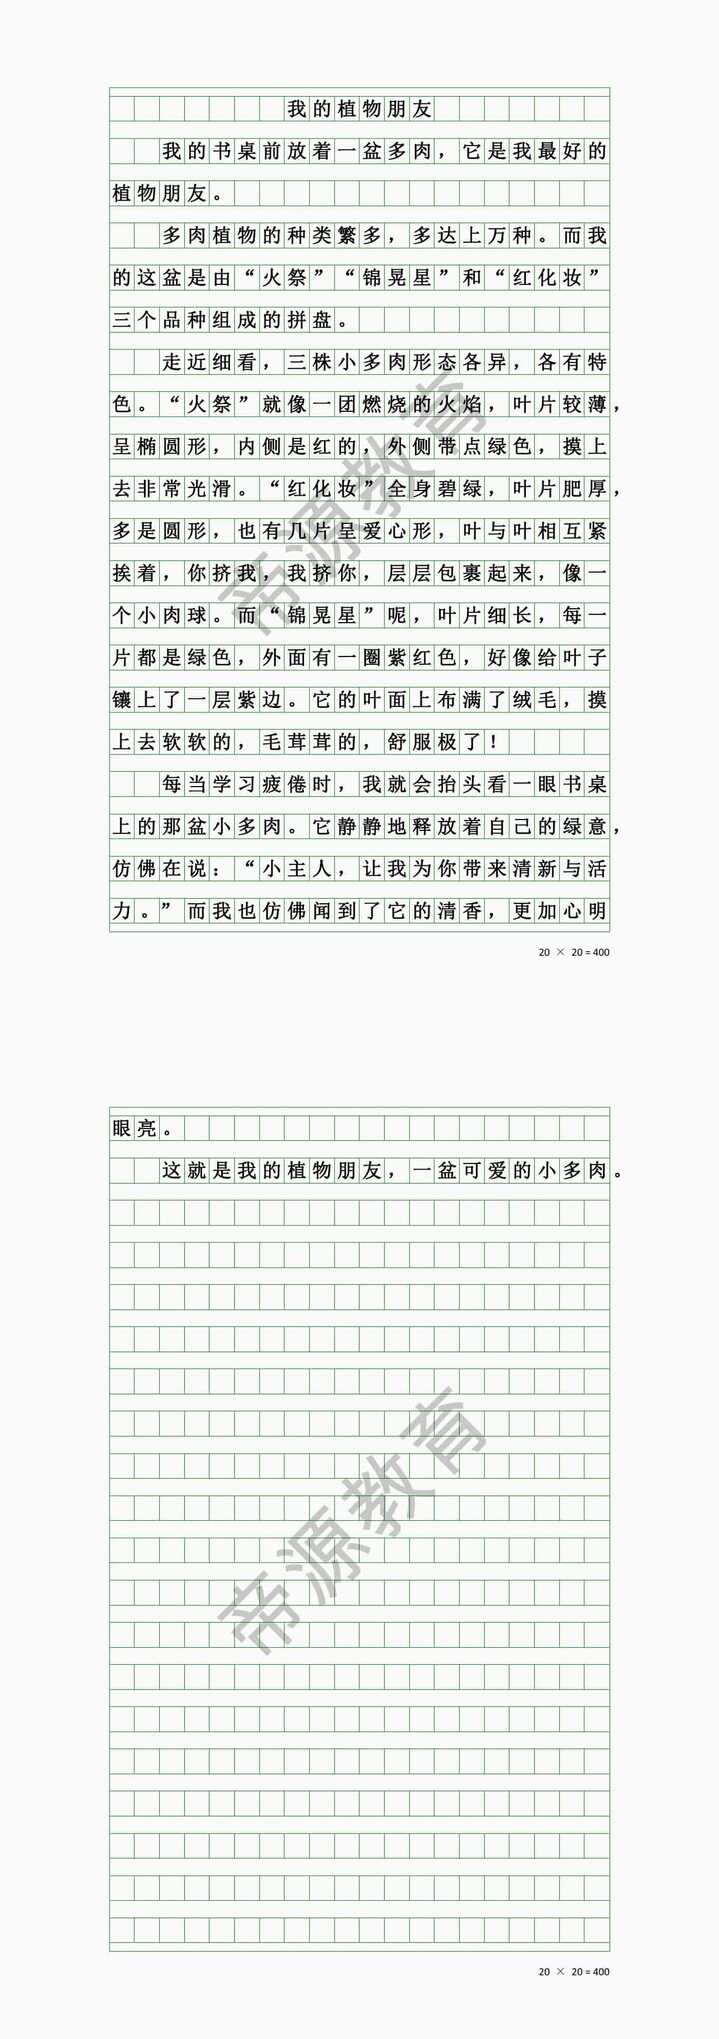 我的植物朋友
我的书桌前放着一盆多肉，它是我最好的
植物朋友。
多肉植物的种类繁多，多达上万种。而我
的这盆是由“火祭”“锦晃星”和“红化妆”
三个品种组成的拼盘。
走近细看，三株小多肉形态各异，各有特
色。“火祭”就像一团燃烧的火焰，叶片较薄，
呈椭圆形，内侧是红的，外侧带点绿色，摸上
去非常光滑。“红化妆”全身碧绿，叶片肥厚，
多是圆形，也有几片呈爱心形，叶与叶相互紧
挨着，你挤我，我挤你，层层包裹起来，像一
个小肉球。而“锦晃星”呢，叶片细长，每一
片都是绿色，外面有一圈紫红色，好像给叶子
镶上了一层紫边。它的叶面上布满了绒毛，摸
上去软软的，毛茸茸的，舒服极了！
每当学习疲倦时，我就会抬头看一眼书桌
上的那盆小多肉。它静静地释放着自己的绿意，
仿佛在说：“小主人，让我为你带来清新与活
力。”而我也仿佛闻到了它的清香，更加心明
20 × 20 = 400
眼亮。
这就是我的植物朋友，一盆可爱的小多肉。
20 × 20 = 400
帝源教育
帝源教育